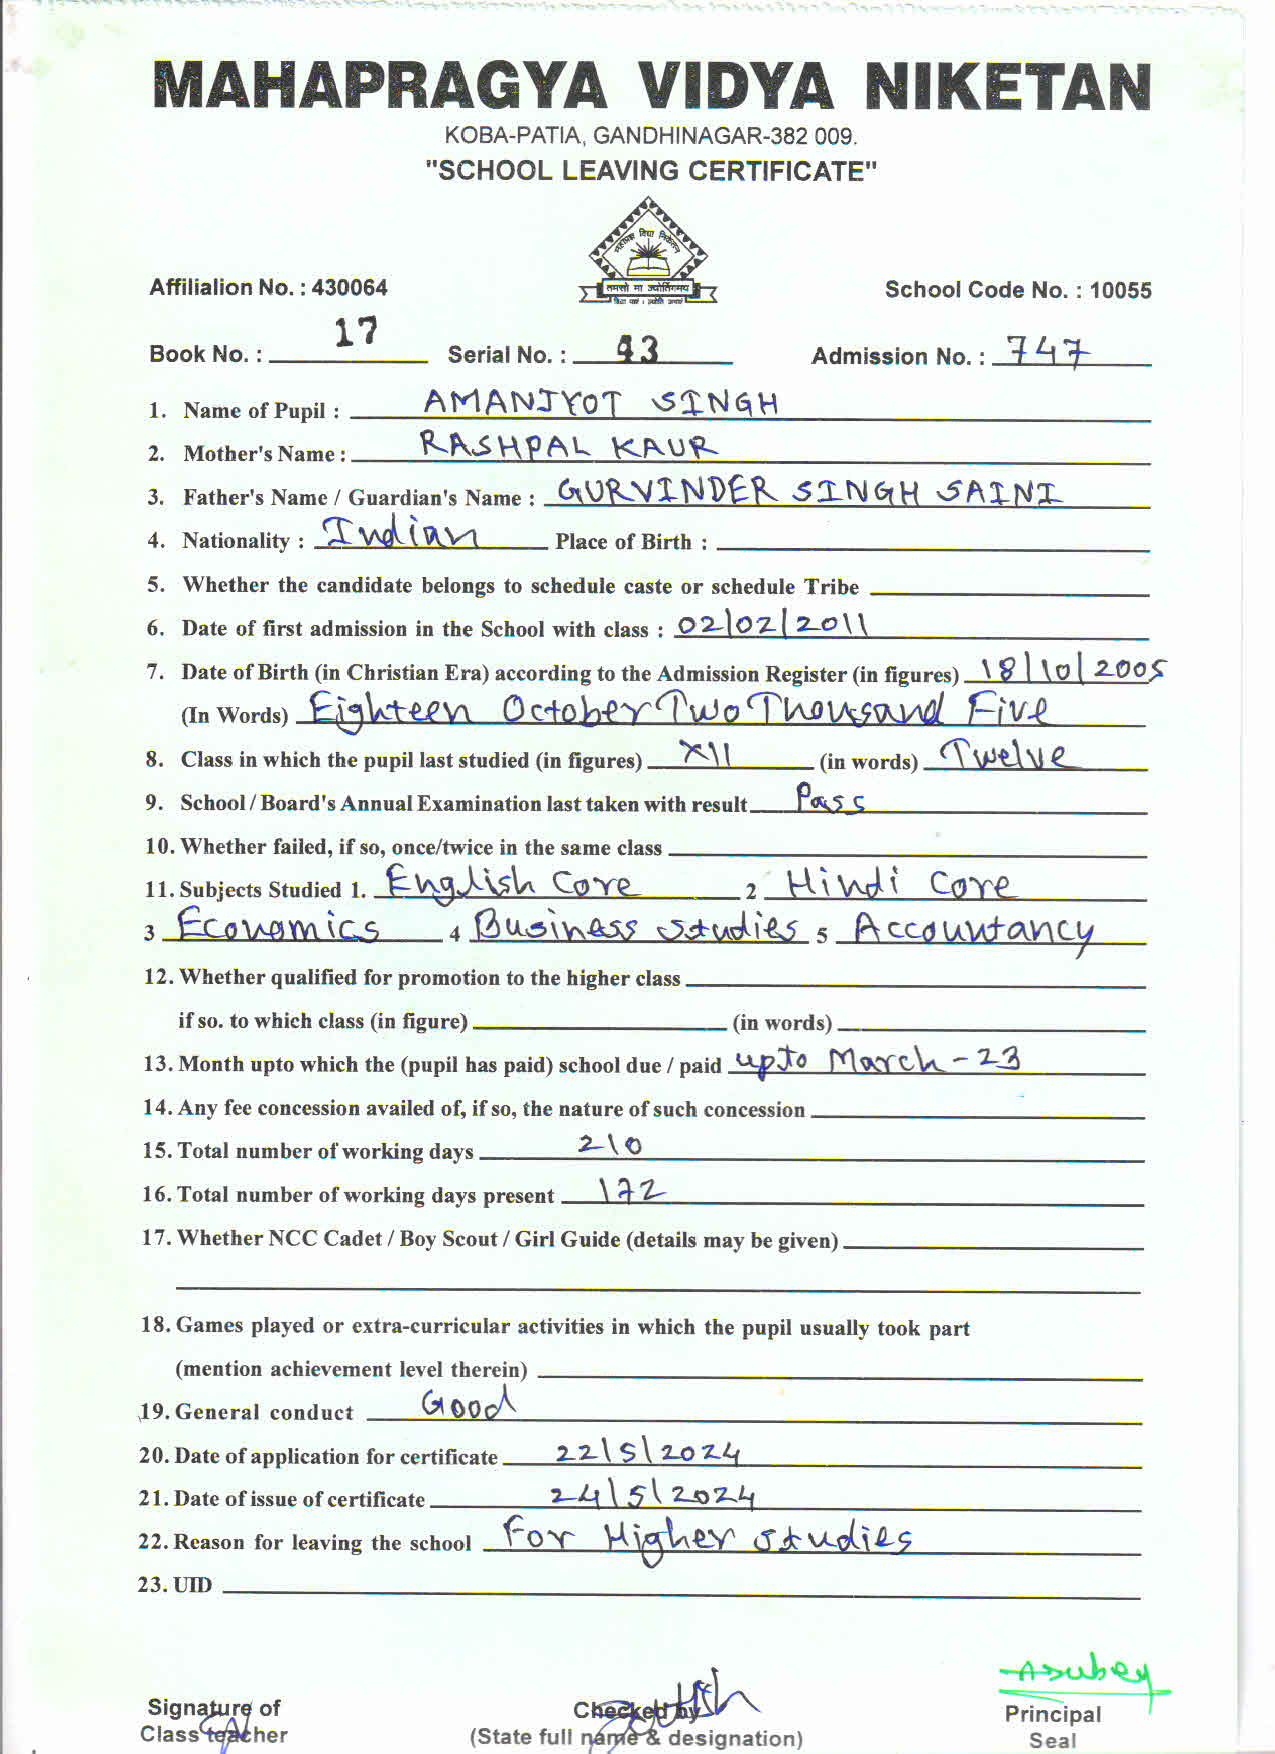 MAHAPRAGYA VIDYA NIKETAN
KOBA-PATIA, GANDHINAGAR-382 009.
"SCHOOL LEAVING CERTIFICATE"
महाप्रज्ञ विद्या निकेतन
तमसो मा ज्योतिर्गमय
Affilialion No. : 430064 School Code No. : 10055
Book No. : 17 Serial No. : 43 Admission No. : 747
1. Name of Pupil : AMANJYOT SINGH
2. Mother's Name : RASHPAL KAUR
3. Father's Name / Guardian's Name : GURVINDER SINGH SAINI
4. Nationality : Indian Place of Birth :
5. Whether the candidate belongs to schedule caste or schedule Tribe
6. Date of first admission in the School with class : 02/02/2011
7. Date of Birth (in Christian Era) according to the Admission Register (in figures) 18/10/2005
(In Words) Eighteen October Two Thousand Five
8. Class in which the pupil last studied (in figures) XII (in words) Twelve
9. School / Board's Annual Examination last taken with result Pass
10. Whether failed, if so, once/twice in the same class
11. Subjects Studied 1. English Core 2 Hindi Core
3 Economics 4 Business studies 5 Accountancy
12. Whether qualified for promotion to the higher class
if so. to which class (in figure) (in words)
13. Month upto which the (pupil has paid) school due / paid upto March-23
14. Any fee concession availed of, if so, the nature of such concession
15. Total number of working days 210
16. Total number of working days present 172
17. Whether NCC Cadet / Boy Scout / Girl Guide (details may be given)
18. Games played or extra-curricular activities in which the pupil usually took part
(mention achievement level therein)
19. General conduct Good
20. Date of application for certificate 22\5\2024
21. Date of issue of certificate 24\5\2024
22. Reason for leaving the school For Higher studies
23. UID
Adubey
Signature of Checked by Principal
Class teacher (State full name & designation) Seal